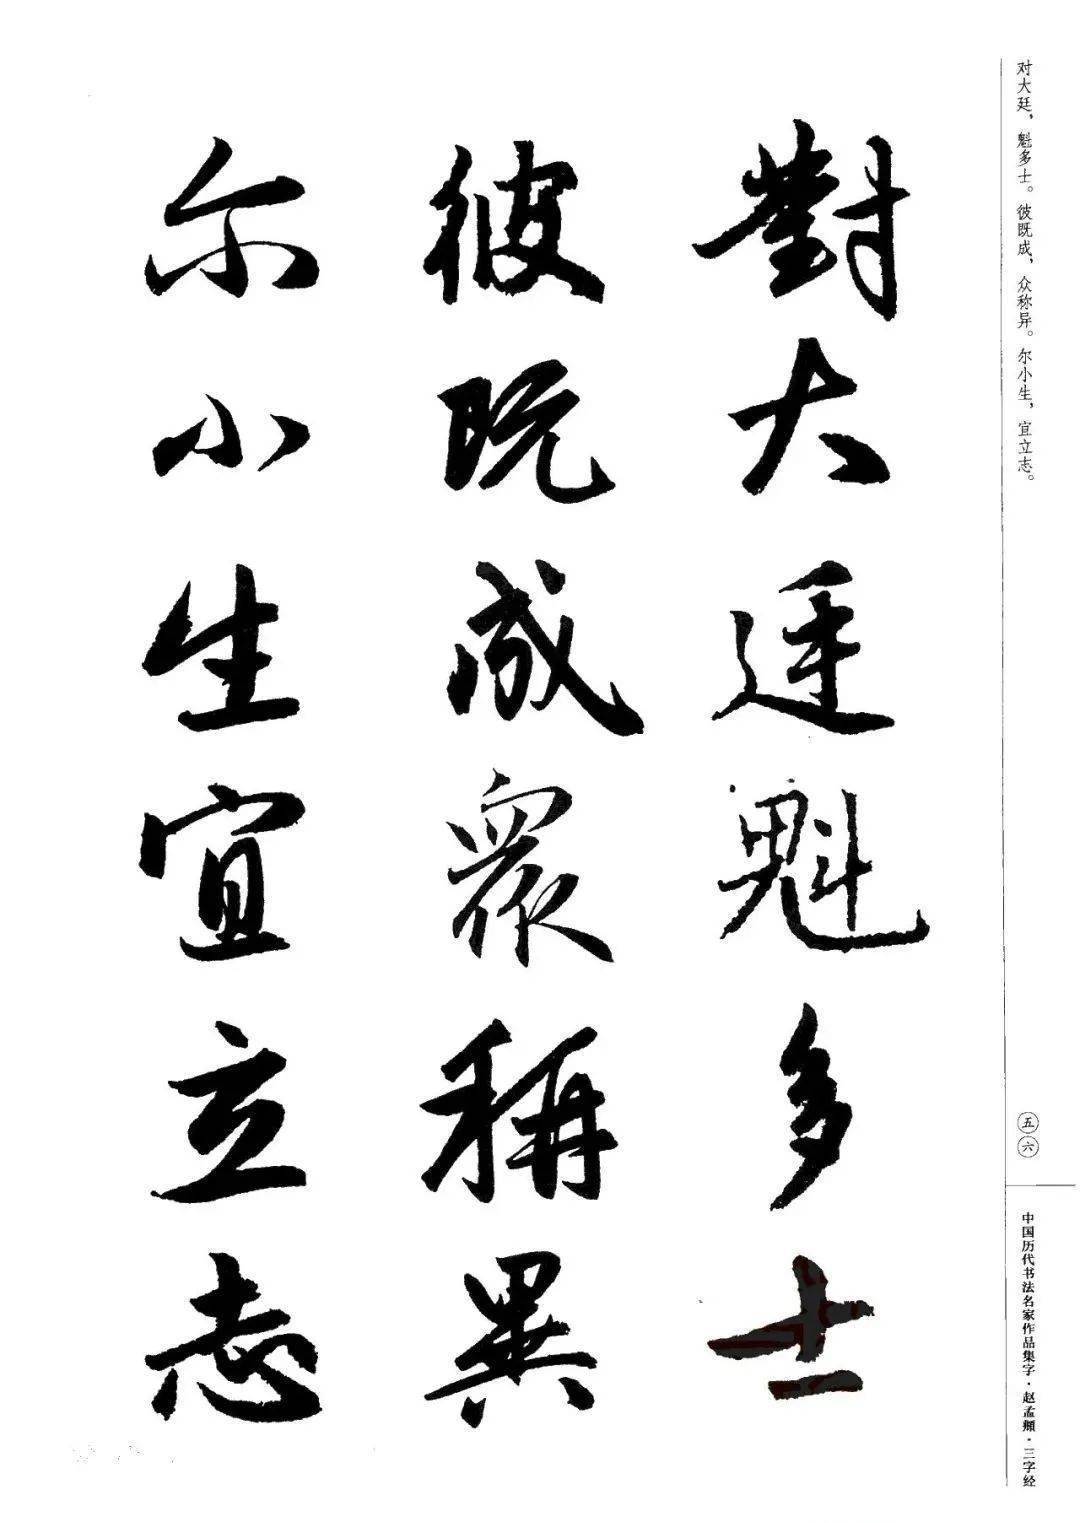 對大廷魁多士
彼既成眾稱異
尔小生宜立志
对大廷，魁多士。彼既成，众称异。尔小生，宜立志。
五六
中国历代书法名家作品集字·赵孟頫·三字经